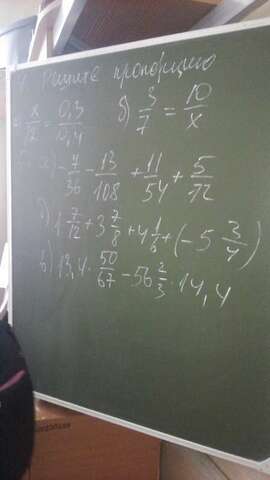 Решите пропорцию
x/12 = 0,3/0,4 б) 3/7 = 10/x
а) -7/36 - 13/108 + 11/54 + 5/72
б) 1 7/12 + 3 7/8 + 4 1/6 + (-5 3/4)
в) 13,4 · 50/67 - 56 2/3 · 14,4